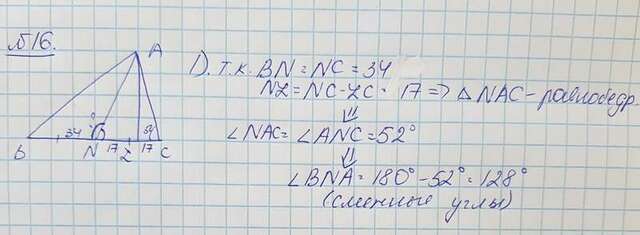 №16.
A
1). т.к. BN = NC = 34
NZ = NC - ZC = 17 => △ NAC - равнобедр.
∠NAC = ∠ANC = 52°
∠BNA = 180° - 52° = 128°
(смежные углы)
B 34 N 17 Z 17 C